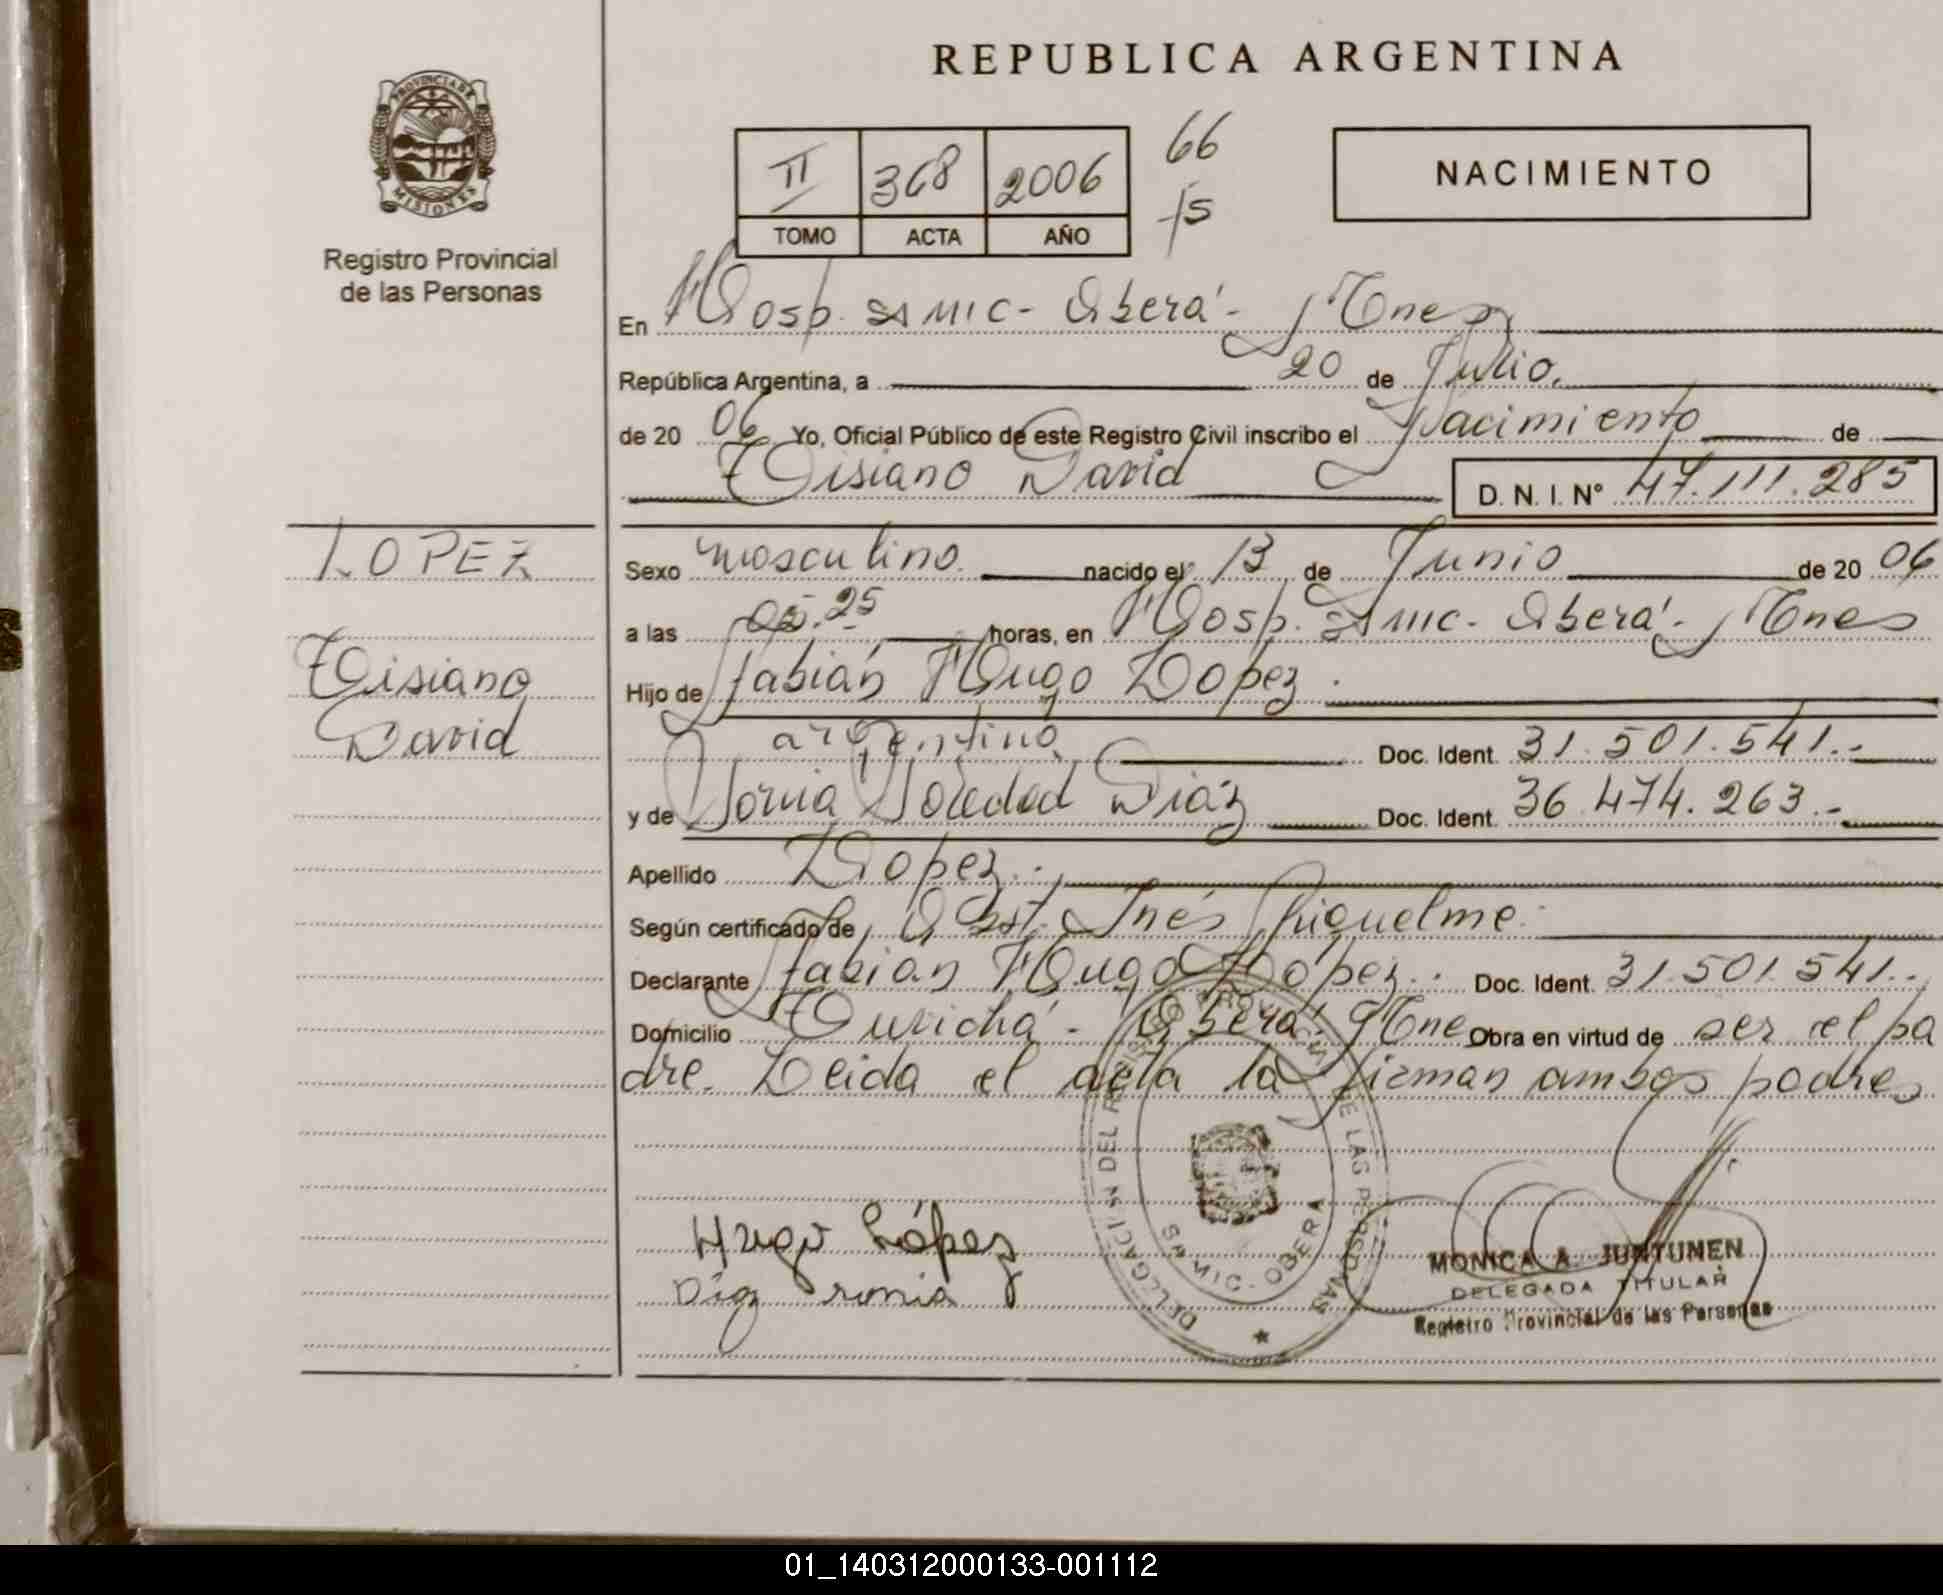 REPUBLICA ARGENTINA
PROVINCIA DE
MISIONES
Registro Provincial
de las Personas
II 368 2006
TOMO ACTA AÑO
66
f5
NACIMIENTO
En Hosp. SAMIC - Oberá - Mnes
República Argentina, a 20 de Julio.
de 20 06 Yo, Oficial Público de este Registro Civil inscribo el Nacimiento de
Tisiano David D. N. I. N° 47.111.285
LOPEZ
Tisiano
David
Sexo masculino. nacido el 13 de Junio de 20 06
a las 05.25 horas, en Hosp. SAMIC - Oberá - Mnes
Hijo de Fabián Hugo Lopez.
argentino Doc. Ident. 31.501.541.-
y de Sonia Soledad Diáz Doc. Ident. 36.474.263.-
Apellido Lopez.-
Según certificado de Obst. Inés Riquelme.
Declarante Fabián Hugo López. Doc. Ident. 31.501.541.
Domicilio Guricha - Oberá Mne Obra en virtud de ser el pa
dre. Leida el acta la firman ambos padres
Hugo López
Diaz sonia
DELEGACIN DEL REGISTRO PROVINCIAL DE LAS PERSONAS
SAMIC - OBERA
MONICA A. JUNTUNEN
DELEGADA TITULAR
Registro Provincial de las Personas
01_140312000133-001112